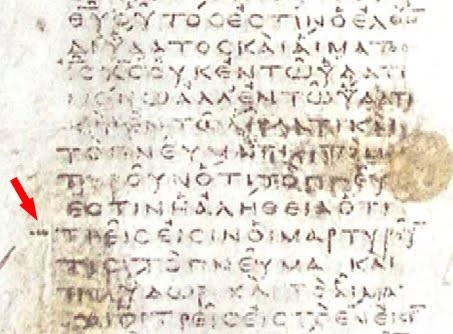 ΘΥΟΥΤΟϹΕϹΤΙΝΟΕΛΘΩΝ
ΔΙΥΔΑΤΟϹΚΑΙΑΙΜΑΤΟϹ
ΙϹΧϹΟΥΚΕΝΤΩΥΔΑΤΙ
ΜΟΝΩΑΛΛΕΝΤΩΥΔΑΤΙ
ΚΑΙΕΝΤΩ ΚΑΙ
ΤΟΠΝΕΥΜΑ
ΤΥΡΟΥΝΟΤΙΤΟΠΝΕΥ
ΕϹΤΙΝΗΑΛΗΘΕΙΑΟΤΙ
ΤΡΕΙϹΕΙϹΙΝΟΙΜΑΡΤΥΡΟΥ
ΤΕϹΤΟΠΝΕΥΜΑΚΑΙ
ΤΟΥΔΩΡΚΑΙΤΟΑΙΜΑ
ΚΑΙΟΙΤΡΕΙϹΕΙϹΤΟΕΝΕΙϹΙ